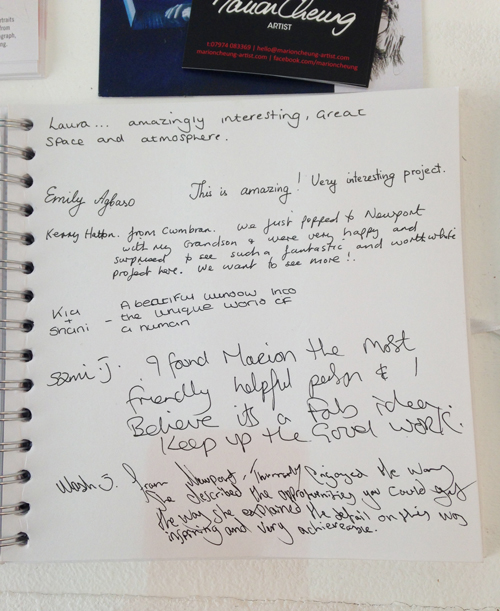 Marion Cheung
ARTIST
t:07974 083369 | hello@marioncheung-artist.com
marioncheung-artist.com | facebook.com/marioncheung
Laura... amazingly interesting, Great
space and atmosphere.
Emily Agbaso This is amazing! Very interesting project.
Kerry Hatton. from Cwmbran. We just popped to Newport
with my Grandson & were very happy and
surprised to see such a fantastic and worthwhile
project here. We want to see more!.
Kia + Shani - A beatiful window into
the unique world of
a human
Sami J. I found Marion the most
friendly helpful person & I
Believe it's a Fab idea.
Keep up the Good work.
J. from Newport, Enjoyed the way
she described the opportunities you could get
the way she explained the detail on this was
inspiring and very achiereable.